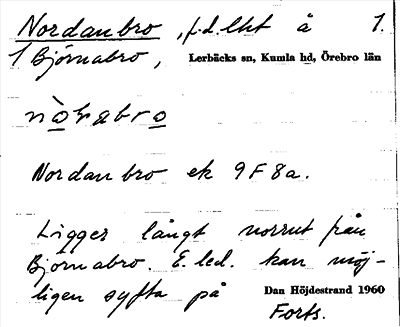 Nordanbro, f.d. lht å 1.
1 Björnabro, Lerbäcks sn, Kumla hd, Örebro län
Nordanbro ek 9F8a.
Ligger långt norrut från
Björnabro. E.led. kan möj-
ligen syfta på Dan Höjdestrand 1960
Forts.